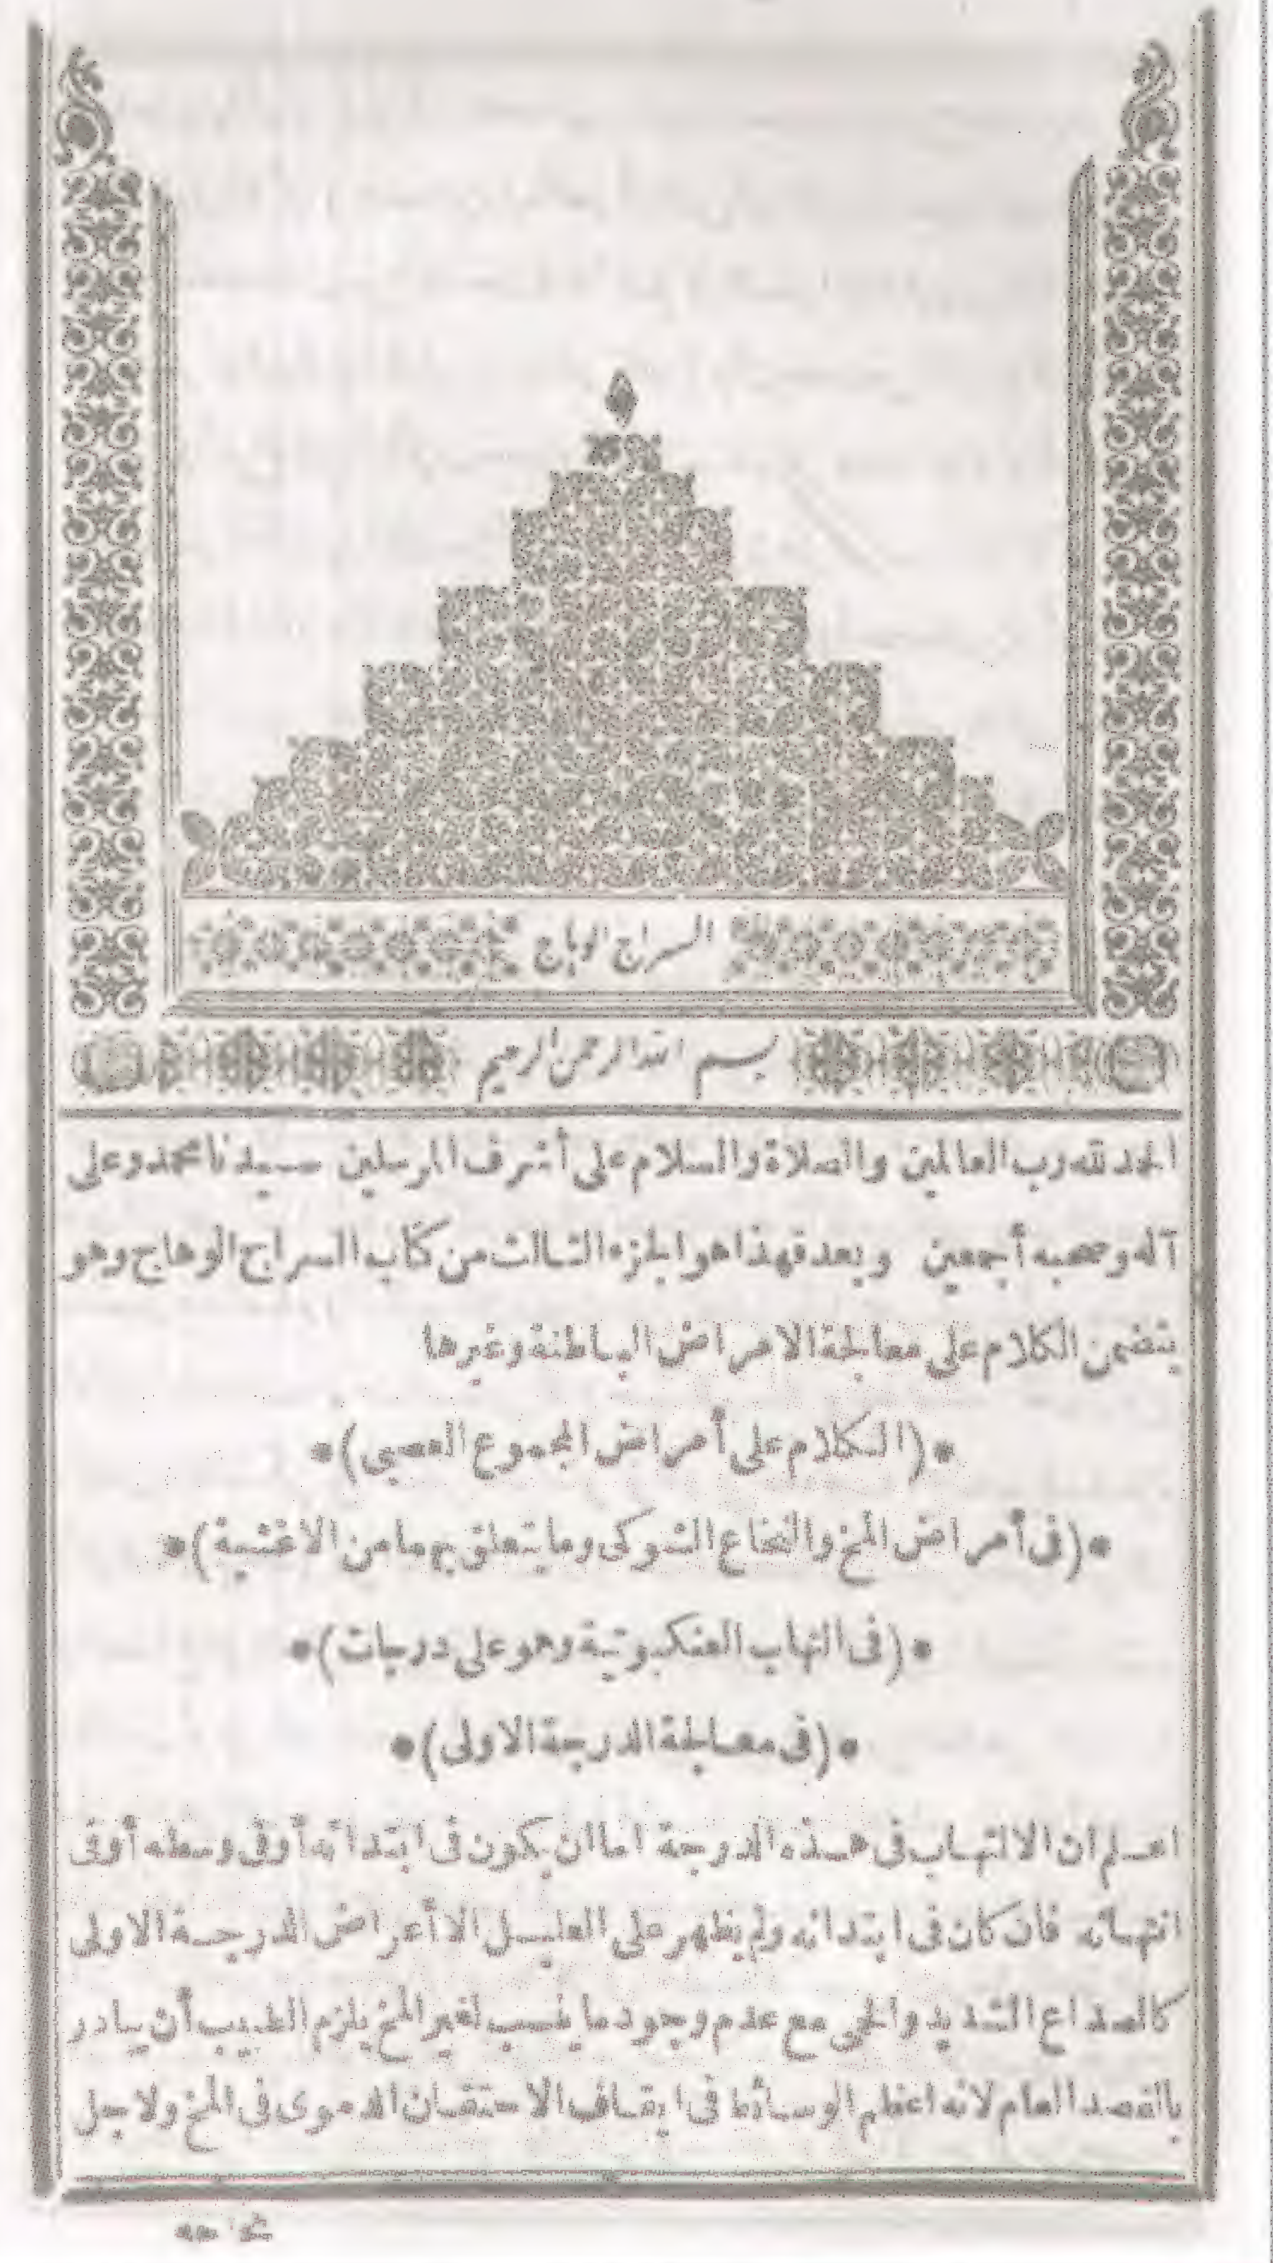 السراج الوهاج
بسم الله الرحمن الرحيم
الحمد لله رب العالمين والصلاة والسلام على أشرف المرسلين سيدنا محمد وعلى
آله وصحبه أجمعين وبعد فهذا هو الجزء الثالث من كتاب السراج الوهاج وهو
يتضمن الكلام على معالجة الامراض الباطنة وغيرها
*(الكلام على أمراض المجموع العصبى)*
*(فى أمراض المخ والنخاع الشوكى وما يتعلق بهما من الاغشية)*
*(فى التهاب العنكبوتية وهو على درجات)*
*(فى معالجة الدرجة الاولى)*
اعلم ان الالتهاب فى هذه الدرجة اما ان يكون فى ابتدائه أو فى وسطه أو فى
انتهائه فان كان فى ابتدائه ولم يظهر على العليل الا أعراض الدرجة الاولى
كالصداع الشديد والحمى مع عدم وجود ما ينسب لغير المخ يلزم الطبيب أن يبادر
بالفصد العام لانه اعظم الوسائط فى ايقاف الاحتقان الدموى فى المخ ولاجل